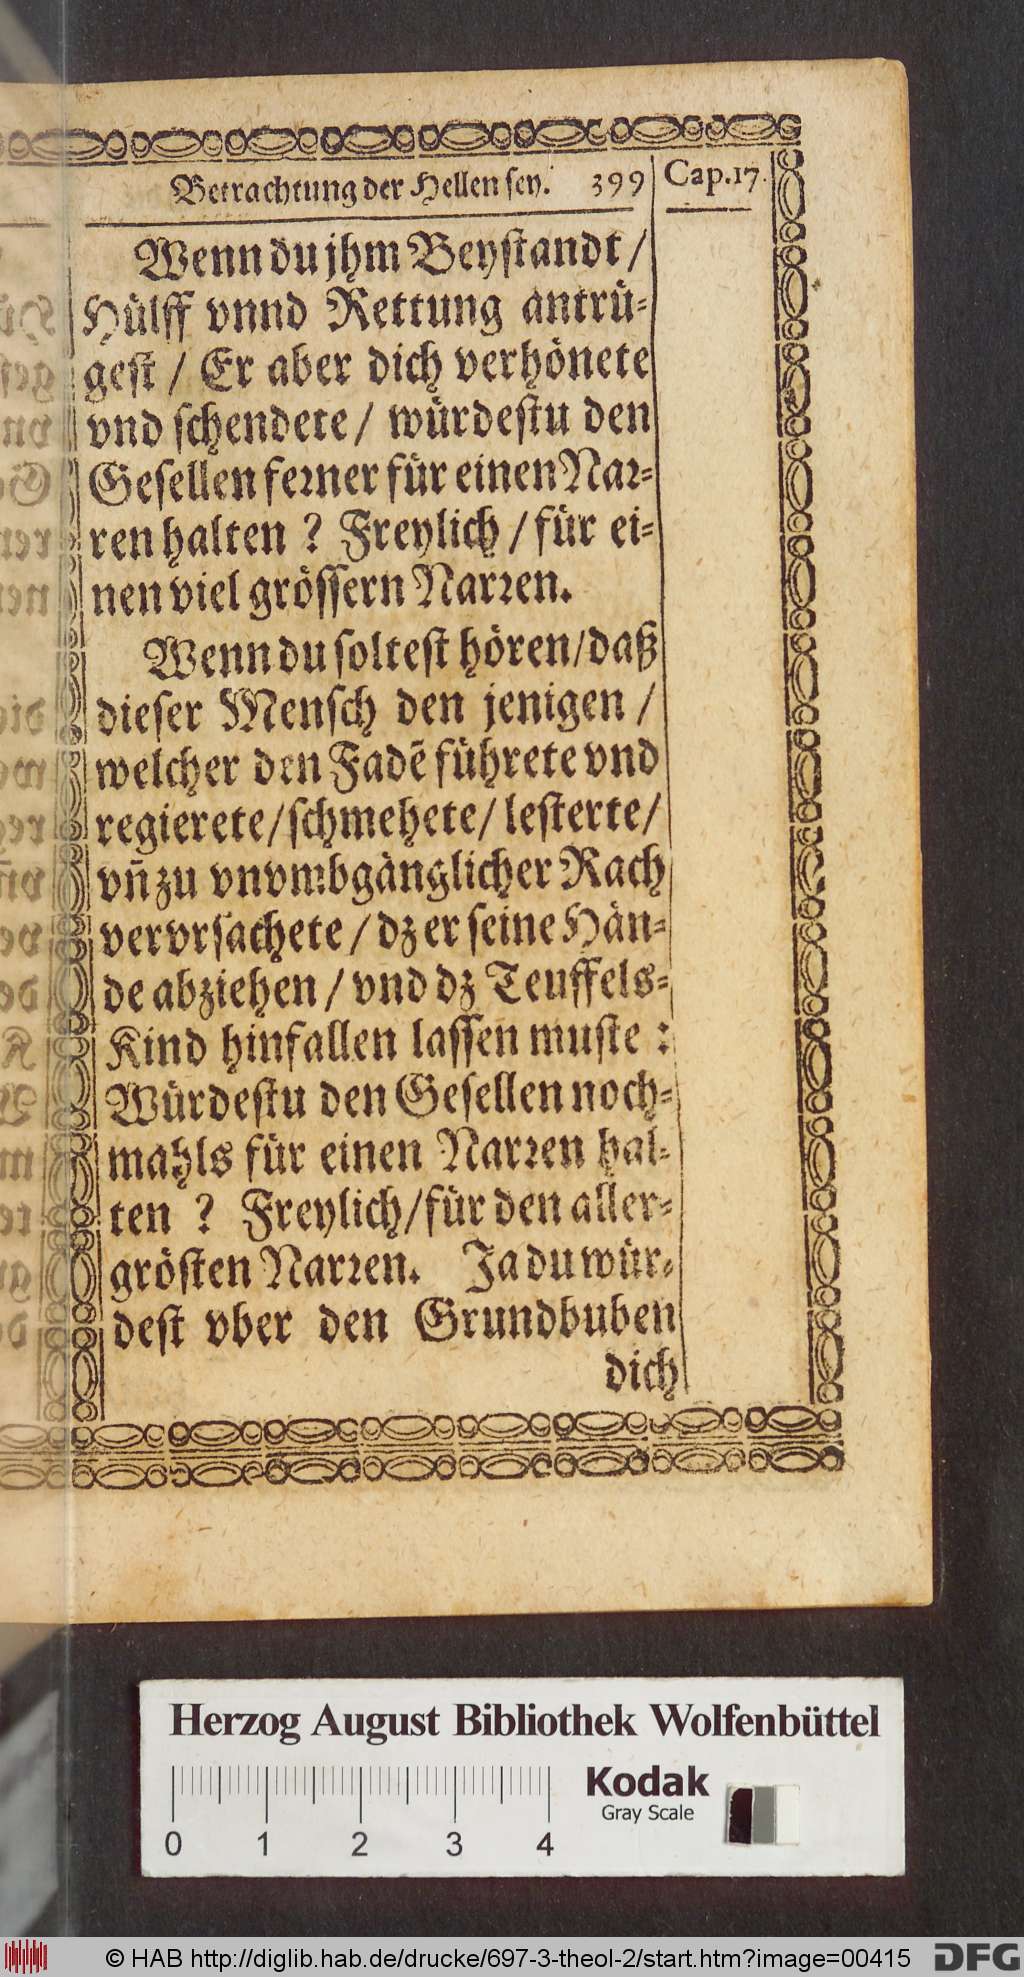 Betrachtung der Hellen sey. 399 Cap.17.
Wenn du jhm Beystandt /
Hülff vnnd Rettung antrü-
gest / Er aber dich verhönete
vnd schendete / würdestu den
Gesellen ferner für einen Nar-
ren halten ? Freylich / für ei-
nen viel grössern Narren.
Wenn du soltest hören / daß
dieser Mensch den jenigen /
welcher den Fadẽ führete vnd
regierete / schmehete / lesterte /
vñ zu vnvmbgänglicher Rach
vervrsachete / dz er seine Hän-
de abziehen / vnd dz Teuffels-
Kind hinfallen lassen muste :
Würdestu den Gesellen noch-
mahls für einen Narren hal-
ten ? Freylich / für den aller-
grösten Narren. Ja du wür-
dest vber den Grundbuben
dich
Herzog August Bibliothek Wolfenbüttel
Kodak
Gray Scale
0 1 2 3 4
© HAB http://diglib.hab.de/drucke/697-3-theol-2/start.htm?image=00415
DFG